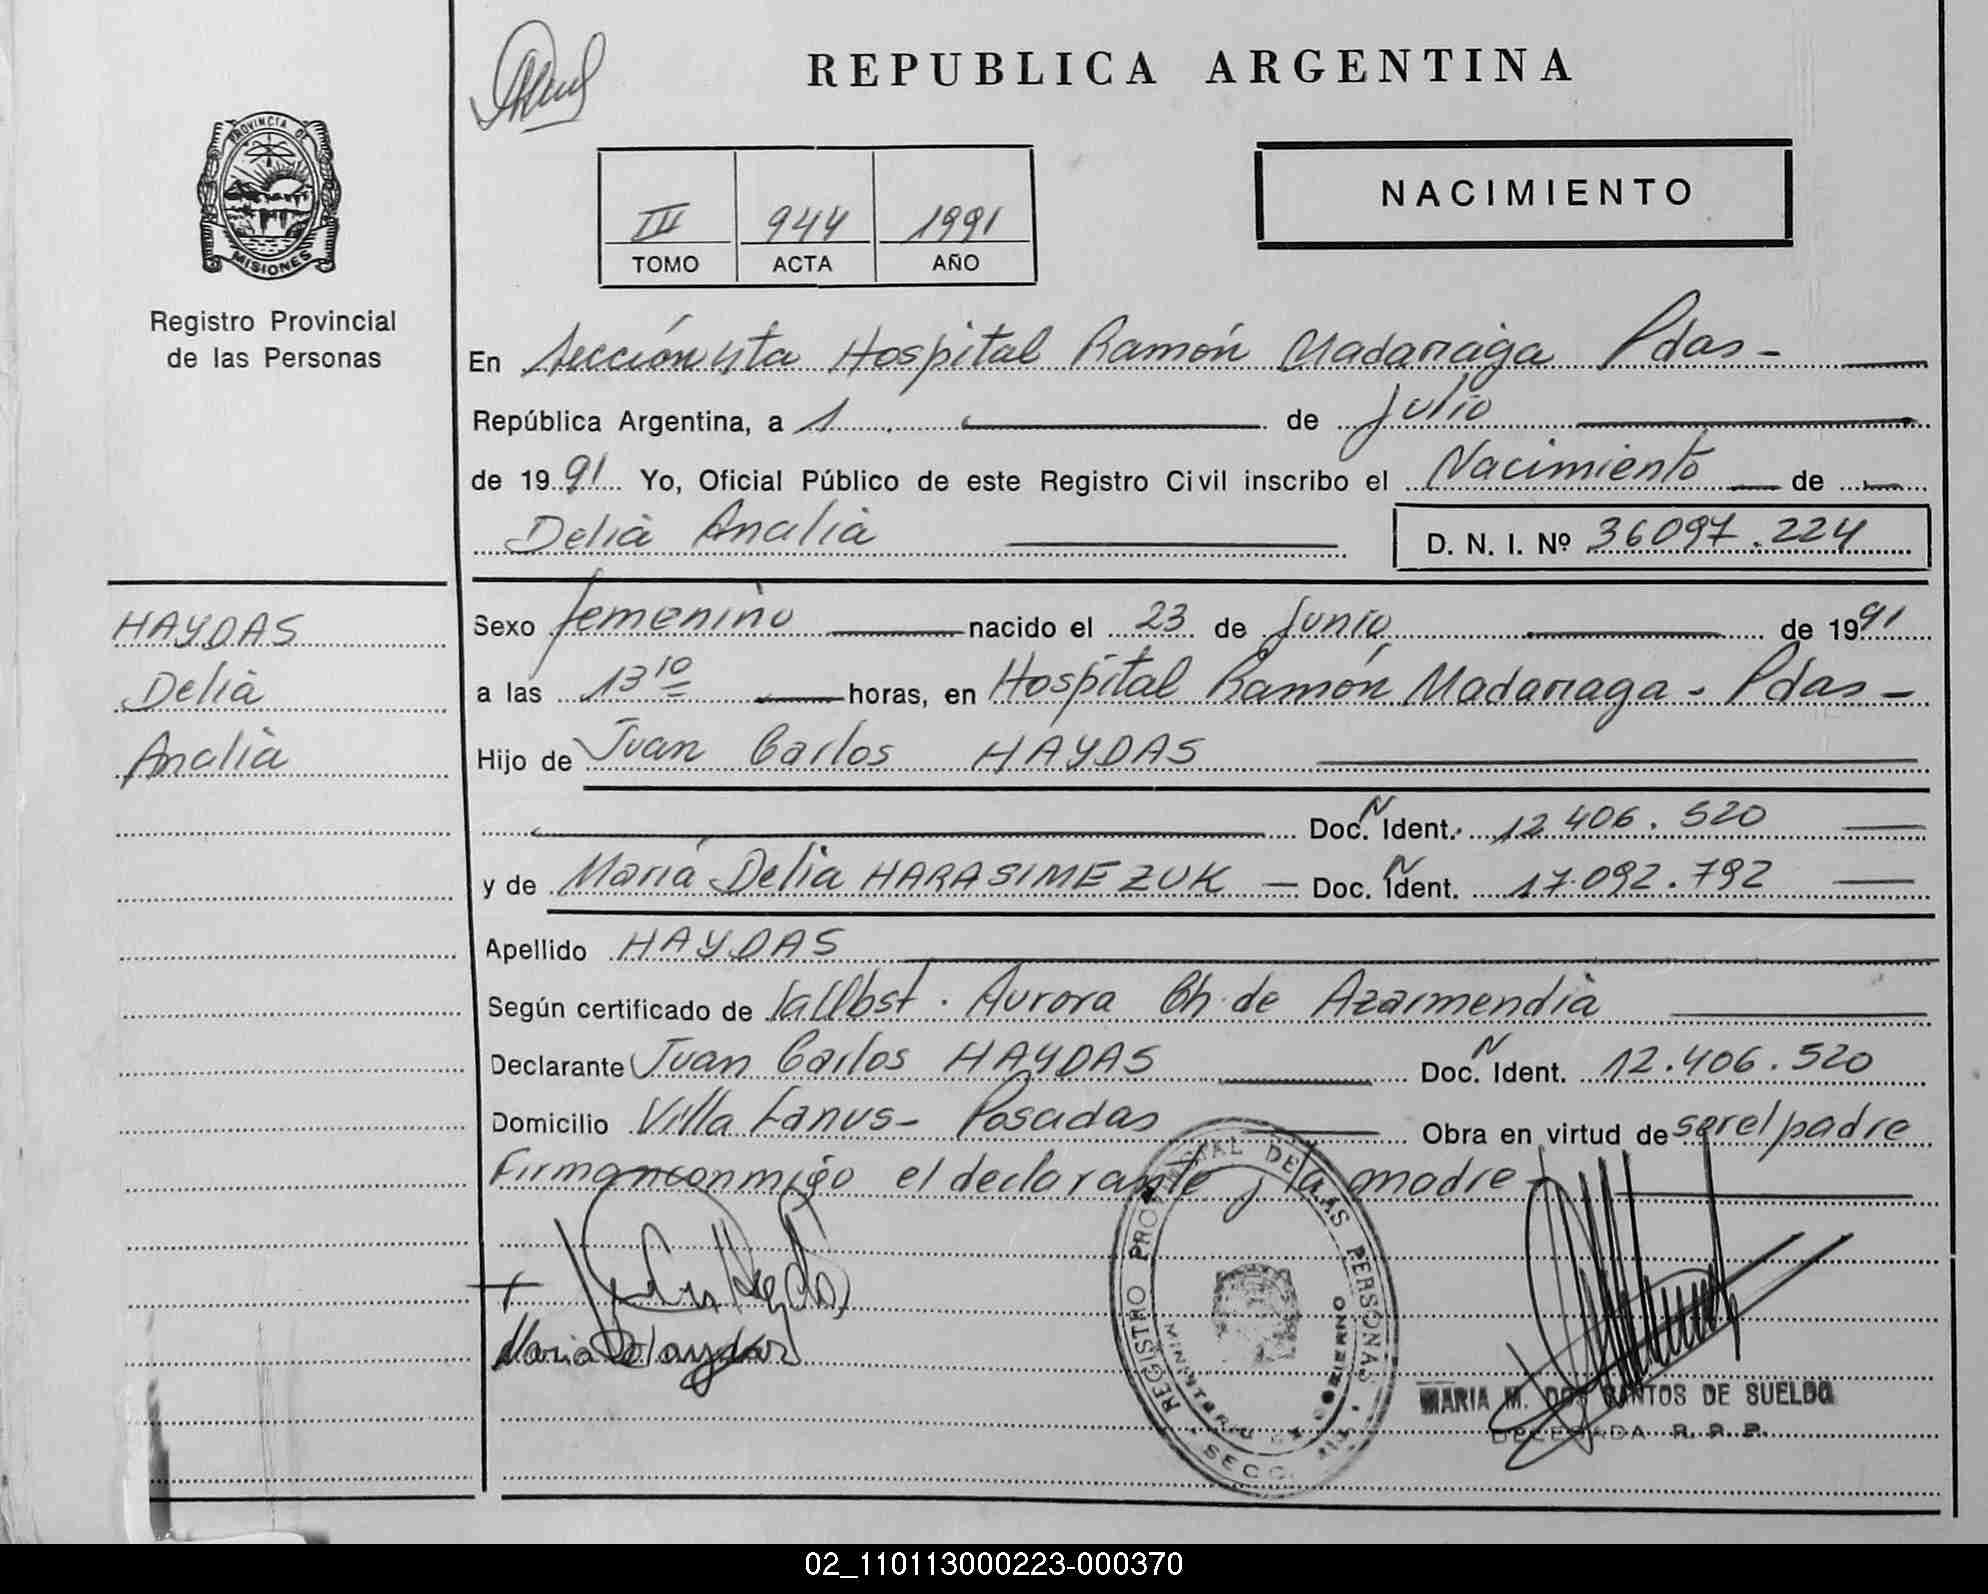 REPUBLICA ARGENTINA
PROVINCIA DE
MISIONES
Registro Provincial
de las Personas
III 944 1991
TOMO ACTA AÑO
NACIMIENTO
En Sección 4ta Hospital Ramón Madariaga Pdas -
República Argentina, a 1 de Julio
de 1991 Yo, Oficial Público de este Registro Civil inscribo el Nacimiento de
Delia Analia D. N. I. Nº 36097.224
HAYDAS
Delia
Analia
Sexo femenino nacido el 23 de Junio de 1991
a las 13 10 horas, en Hospital Ramón Madariaga - Pdas -
Hijo de Juan Carlos HAYDAS
Doc. Ñ Ident. 12.406.520
y de María Delia HARASIMEZUK - Doc. Ñ Ident. 17.092.792
Apellido HAYDAS
Según certificado de Aurora Ch. de Azarmendia
Declarante Juan Carlos HAYDAS Doc. N Ident. 12.406.520
Domicilio Villa Lanus - Posadas Obra en virtud de ser el padre
Firman conmigo el declarante y la madre -
REGISTRO PROVINCIAL DE LAS PERSONAS
MINISTERIO DE GOBIERNO
SECC. 4ta
MARIA M. DOS SANTOS DE SUELDO
DELEGADA R. R. P.
02_110113000223-000370